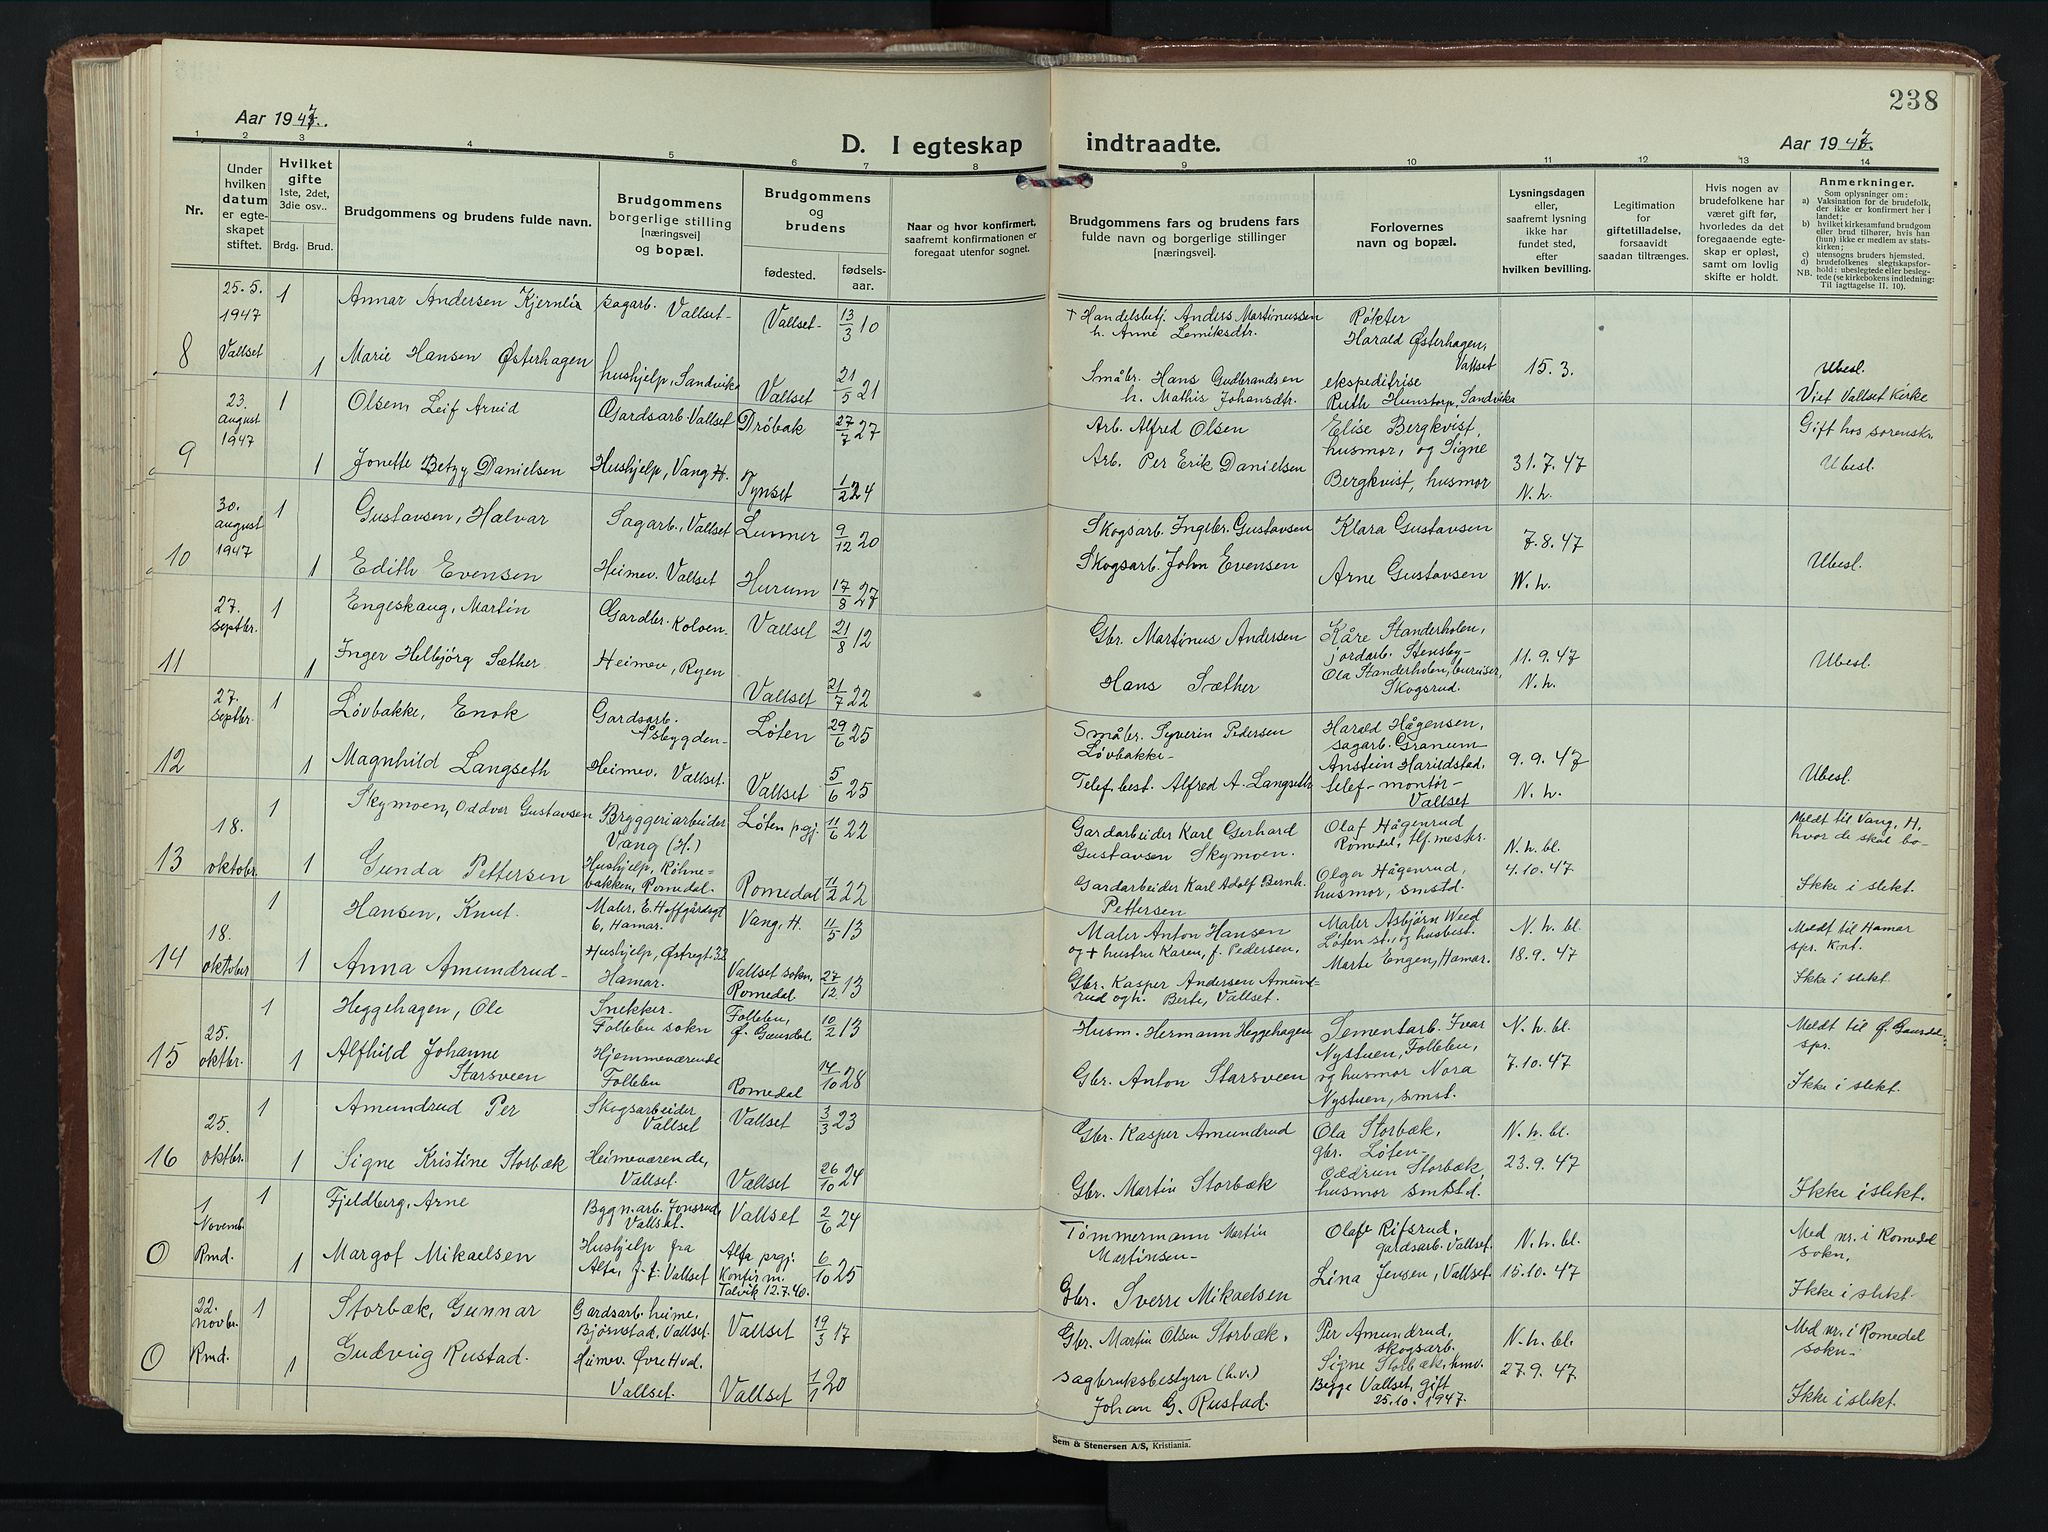 238
Aar 1947.
D. I egteskap indtraadte.
Aar 1947.
1 2 3 4 5 6 7 8 9 10 11 12 13 14
Nr.
Under hvilken datum er egteskapet stiftet.
Hvilket gifte 1ste, 2det, 3die osv..
Brdg. Brud.
Brudgommens og brudens fulde navn.
Brudgommens borgerlige stilling [næringsvei] og bopæl.
Brudgommens og brudens
fødested. fødselsaar.
Naar og hvor konfirmert, saafremt konfirmationen er foregaat utenfor sognet.
Brudgommens fars og brudens fars fulde navn og borgerlige stillinger [næringsvei].
Forlovernes navn og bopæl.
Lysningsdagen eller, saafremt lysning ikke har fundet sted, efter hvilken bevilling.
Legitimation for giftetilladelse, forsaavidt saadan tiltrænges.
Hvis nogen av brudefolkene har været gift før, hvorledes da det foregaaende egteskap er opløst, samt om lovlig skifte er holdt.
Anmerkninger.
Som oplysninger om:
a) Vaksination for de brudefolk, der ikke er konfirmert her i landet;
b) hvilket kirkesamfund brudgom eller brud tilhører, hvis han (hun) ikke er medlem av statskirken;
c) utensogns bruders hjemsted.
d) brudefolkenes slegtskapsforhold: ubeslegtede eller beslegtede (se kirkebokens indledning: Til iagttagelse II. 10).
NB.
8 25.5. 1947 Vallset
1 Annar Andersen Kjernlia sagarb. Vallset Vallset 13/3 10
+ Handelsbetj. Anders Martinussen h. Anne Lemiksdtr.
Røkter Harald Østerhagen, Vallset
1 Marie Hansen Østerhagen hushjelp, Sandvika Vallset 21/5 21
Småbr. Hans Gudbrandsen h. Mathis Johansdtr.
ekspeditrise Ruth Hunstorp, Sandvika
15.3.
Ubesl.
Viet Vallset Kirke
9 23. august 1947
1 Olsen, Leif Arvid Gardsarb. Vallset Drøbak 27/7 27
Arb. Alfred Olsen
Elise Bergkvist, husmor, og Signe Bergkvist, husmor
1 Jonette Betzy Danielsen Hushjelp, Vang H. Tynset 1/2 24
Arb. Per Erik Danielsen
31.7.47 N.h.
Gift hos sorenskr.
Ubesl.
10 30. august 1947
1 Gustavsen, Halvar Sagarb., Vallset Lunner 9/12 20
Skogsarb. Ingebr. Gustavsen
Klara Gustavsen
1 Edith Evensen Heimev. Vallset Hurum 17/8 27
Skogsarb. John Evensen
Arne Gustavsen
7.8.47 N.h.
Ubesl.
11 27. septbr.
1 Engeskaug, Martin Gardbr. Koloen. Vallset 21/8 12
Gbr. Martinus Andersen
Kåre Standerholen, jordarb. Stensby
Ola Standerholen, bureiser, Skogsrud.
1 Inger Helbjörg Sæther Heimev, Ryen Vallset 21/7 22
Hans Sæther
11.9.47 N.h.
Ubesl.
12 27. septbr.
1 Løvbakke, Enok Gardsarb. Åsbygden Løten 29/6 25
Småbr. Syverin Pedersen Løvbakke
Harald Hågensen, sagarb. Granum
Anstein Harildstad, telef-montør Vallset
1 Magnhild Langseth Heimev. Vallset. Vallset 5/6 25
Telef.best. Alfred A. Langseth
9.9.47 N.h.
Ubesl.
13 18. oktober
1 Skymoen, Oddver Gustavsen Bryggeriarbeider Vang (H.) Løten pgj. 11/6 22
Gardarbeider Karl Gerhard Gustavsen Skymoen.
Olaf Hågenrud Romedal, tlf.mester.
1 Gunda Pettersen Hushjelp, Röhnebakken, Romedal. Romedal 11/2 22
Gardarbeider Karl Adolf Bernh. Pettersen
Olga Hågenrud, husmor, smstd.
N.h.bl. 4.10.47
Meldt til Vang, H, hvor de skal bo
Ikke i slekt.
14 18. oktober
1 Hansen, Knut. Maler, E. Hoffgårdsgt 6, Hamar. Vang, H. 11/5 13
Maler Anton Hansen og + hustru Karen, f. Pedersen,
Maler Asbjørn Weed Løten st., og husbest. Marte Engen, Hamar.
1 Anna Amundrud Hushjelp, Østregt. 32 Hamar. Vallset sokn, Romedal 27/12 13
Gbr. Kasper Andersen Amundrud og h. Berte, Vallset.
N.h.bl. 18.9.47
Meldt til Hamar spr. kont.
Ikke i slekt.
15 25. oktbr.
1 Heggehagen, Ole Snekker Follebu sokn Follebu, Ø. Gausdal 10/2 13
Husm. Hermann Heggehagen
Sementarb. Ivar Nystuen, Follebu, og husmor Nora Nystuen, smst.
1 Alfhild Johanne Starsveen Hjemmeværende Follebu Romedal 14/10 28
Gbr. Anton Starsveen
N.h.bl. 7.10.47
Meldt til Ø. Gausdal spr.
Ikke i slekt.
16 25. oktbr.
1 Amundrud Per Skogsarbeider Vallset Vallset 3/3 23
Gbr. Kasper Amundrud
Ola Storbæk, gbr. Løten
Oddrun Storbæk, husmor smstd.
1 Signe Kristine Storbæk Heimeværende, Vallset. Vallset 26/10 24
Gbr. Martin Storbæk
N.h.bl. 23.9.47
Ikke i slekt.
0 1 Novemb. Rmd.
1 Fjeldberg, Arne Byggn.arb. Jonsrud, Vallset. Vallset 2/6 24
Tömmermann Martin Martinsen
Olav Rifsrud, gardsarb. Vallset.
1 Margot Mikaelsen Hushjelp fra Alta, p.t. Vallset Alta prgj. Konfirm. Talvik 12.7.40. 6/10 25
Gbr. Sverre Mikaelsen
Lina Jensen, Vallset
N.h.bl. 15.10.47
Med nr. i Romedal sokn.
Ikke i slekt.
0 22. novbr. Rmd.
1 Storbæk, Gunnar Gardsarb. heime, Bjørnstad, Vallset. Vallset 19/3 17
Gbr. Martin Olsen Storbæk.
Per Amundrud, skogsarb.
Signe Storbæk, hmv. Begge Vallset, gift 25.10.1947.
1 Gudvug Rustad. Heimev. Øvre Hval, Vallset. Vallset 1/1 20
sagbruksbestyrer (h.v.) Johan G. Rustad.
N.h.bl. 27.9.47
Med nr. i Romedal sokn
Ikke i slekt.
Sem & Stenersen A/S, Kristiania.